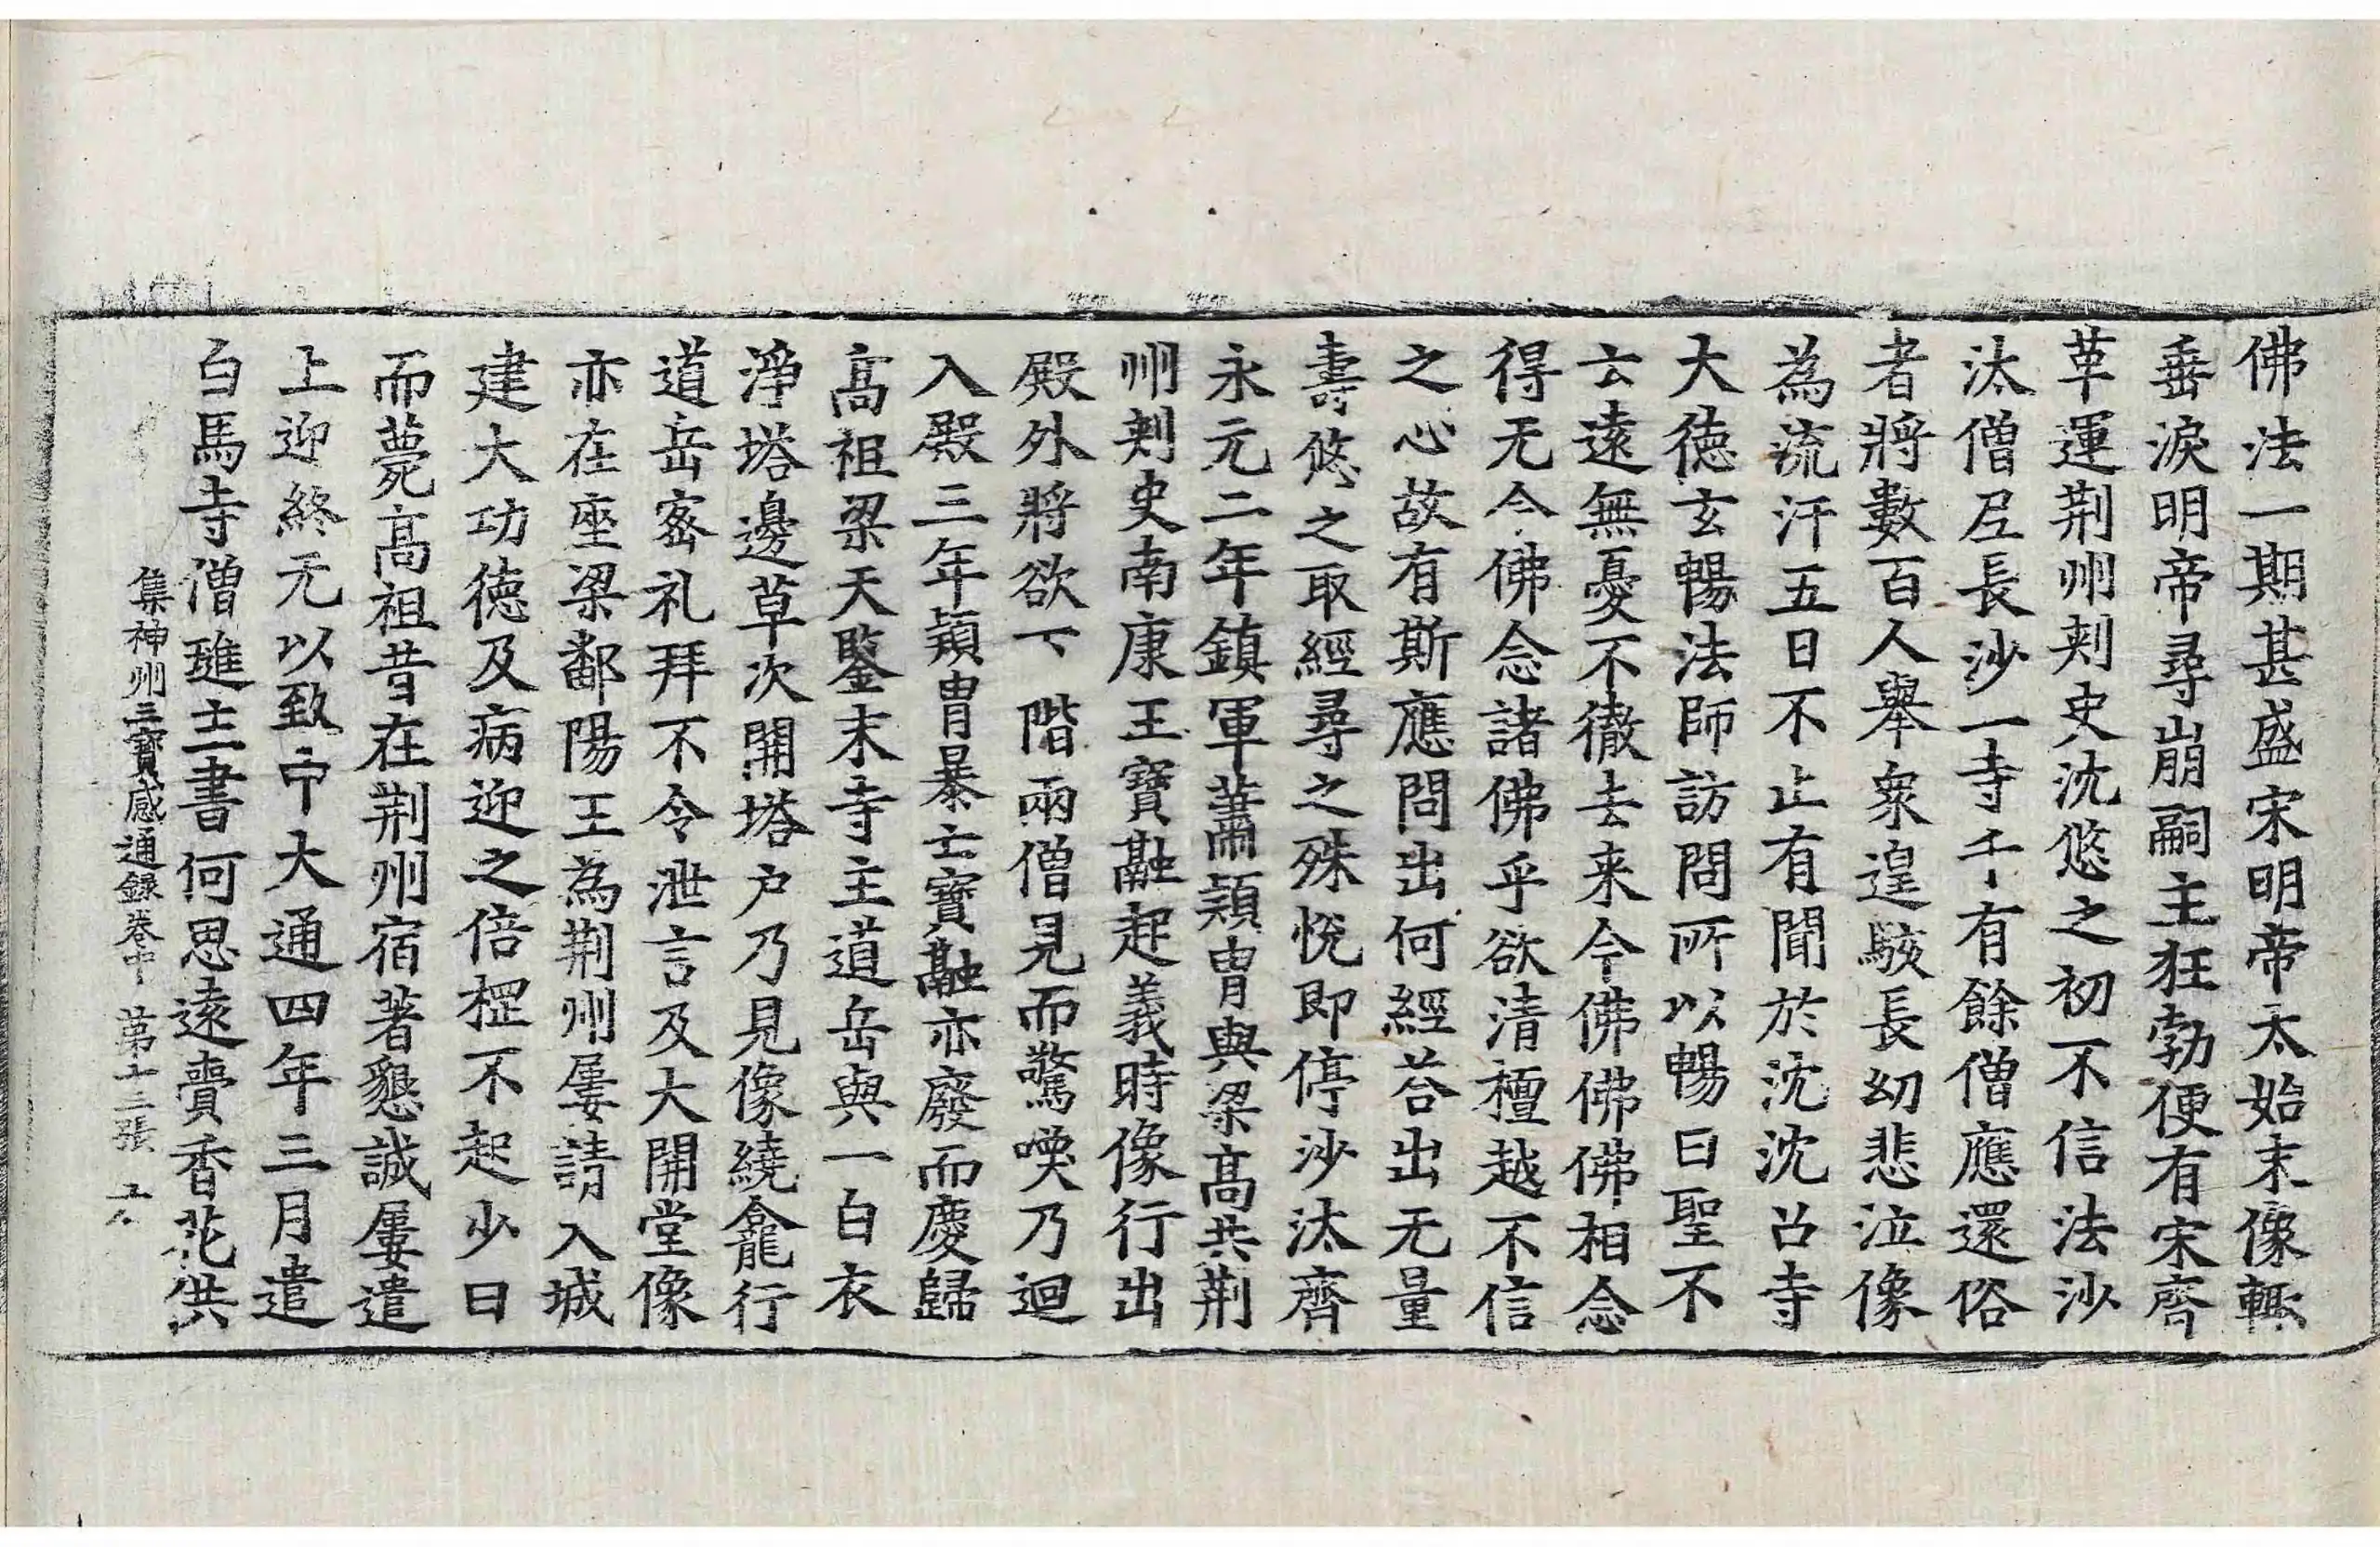 佛法一期甚盛宋明帝太始末像輙
垂淚明帝尋崩嗣主狂勃便有宋齊
革運荆州刾史沈悠之初不信法沙
汰僧尼長沙一寺千有餘僧應還俗
者將數百人舉衆遑駭長幼悲泣像
為流汗五日不止有聞於沈沈召寺
大德玄暢法師訪問所以暢曰聖不
云遠無憂不徹去来今佛佛佛相念
得无今佛念諸佛乎欲清檀越不信
之心故有斯應問出何經荅出无量
壽悠之取經尋之殊悅即停沙汰齊
永元二年鎮軍蕭穎胄與梁高共荆
州刾史南康王寶融起義時像行出
殿外將欲下階兩僧見而驚喚乃迴
入殿三年穎胄暴亡寶融亦廢而慶歸
高祖梁天鑒末寺主道岳與一白衣
淨塔邊草次開塔户乃見像繞龕行
道岳密礼拜不令泄言及大開堂像
亦在座梁鄱陽王為荆州屢請入城
建大功德及病迎之倍㭃不起少曰
而薨高祖昔在荆州宿著懇誠屢遣
上迎終无以致中大通四年三月遣
白馬寺僧璡主書何思遠賷香花供
集神州三寶感通録卷中 第十三張